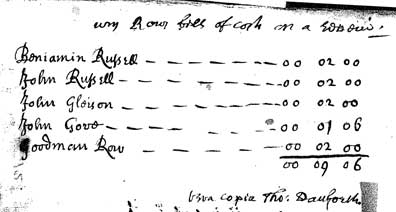 wm Rows bill of cost in a
Beniamin Russell — — — — — 00 02 00
John Russell — — — — — 00 02 00
John Gleison — — — — — 00 02 00
John Gove — — — — — 00 01 06
Goodman Row — — — — — 00 02 00
00 09 06
vera copia Tho: Danforth